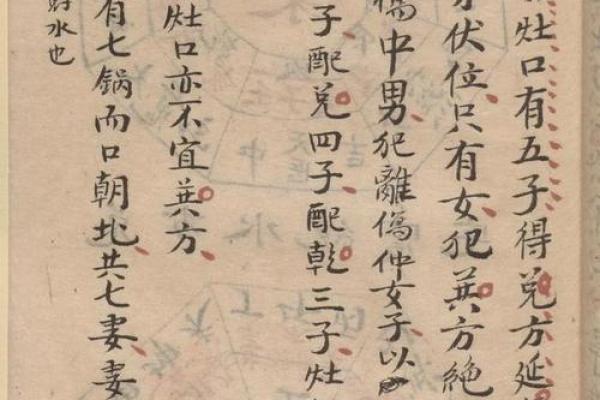 灶口有五子得兌方延
伏位只有女犯巽方絶
傷中男犯離傷仲女子以
子配兌四子配乾三子灶
灶口亦不宜巽方
有七鍋而口朝北共七妻妻
水也